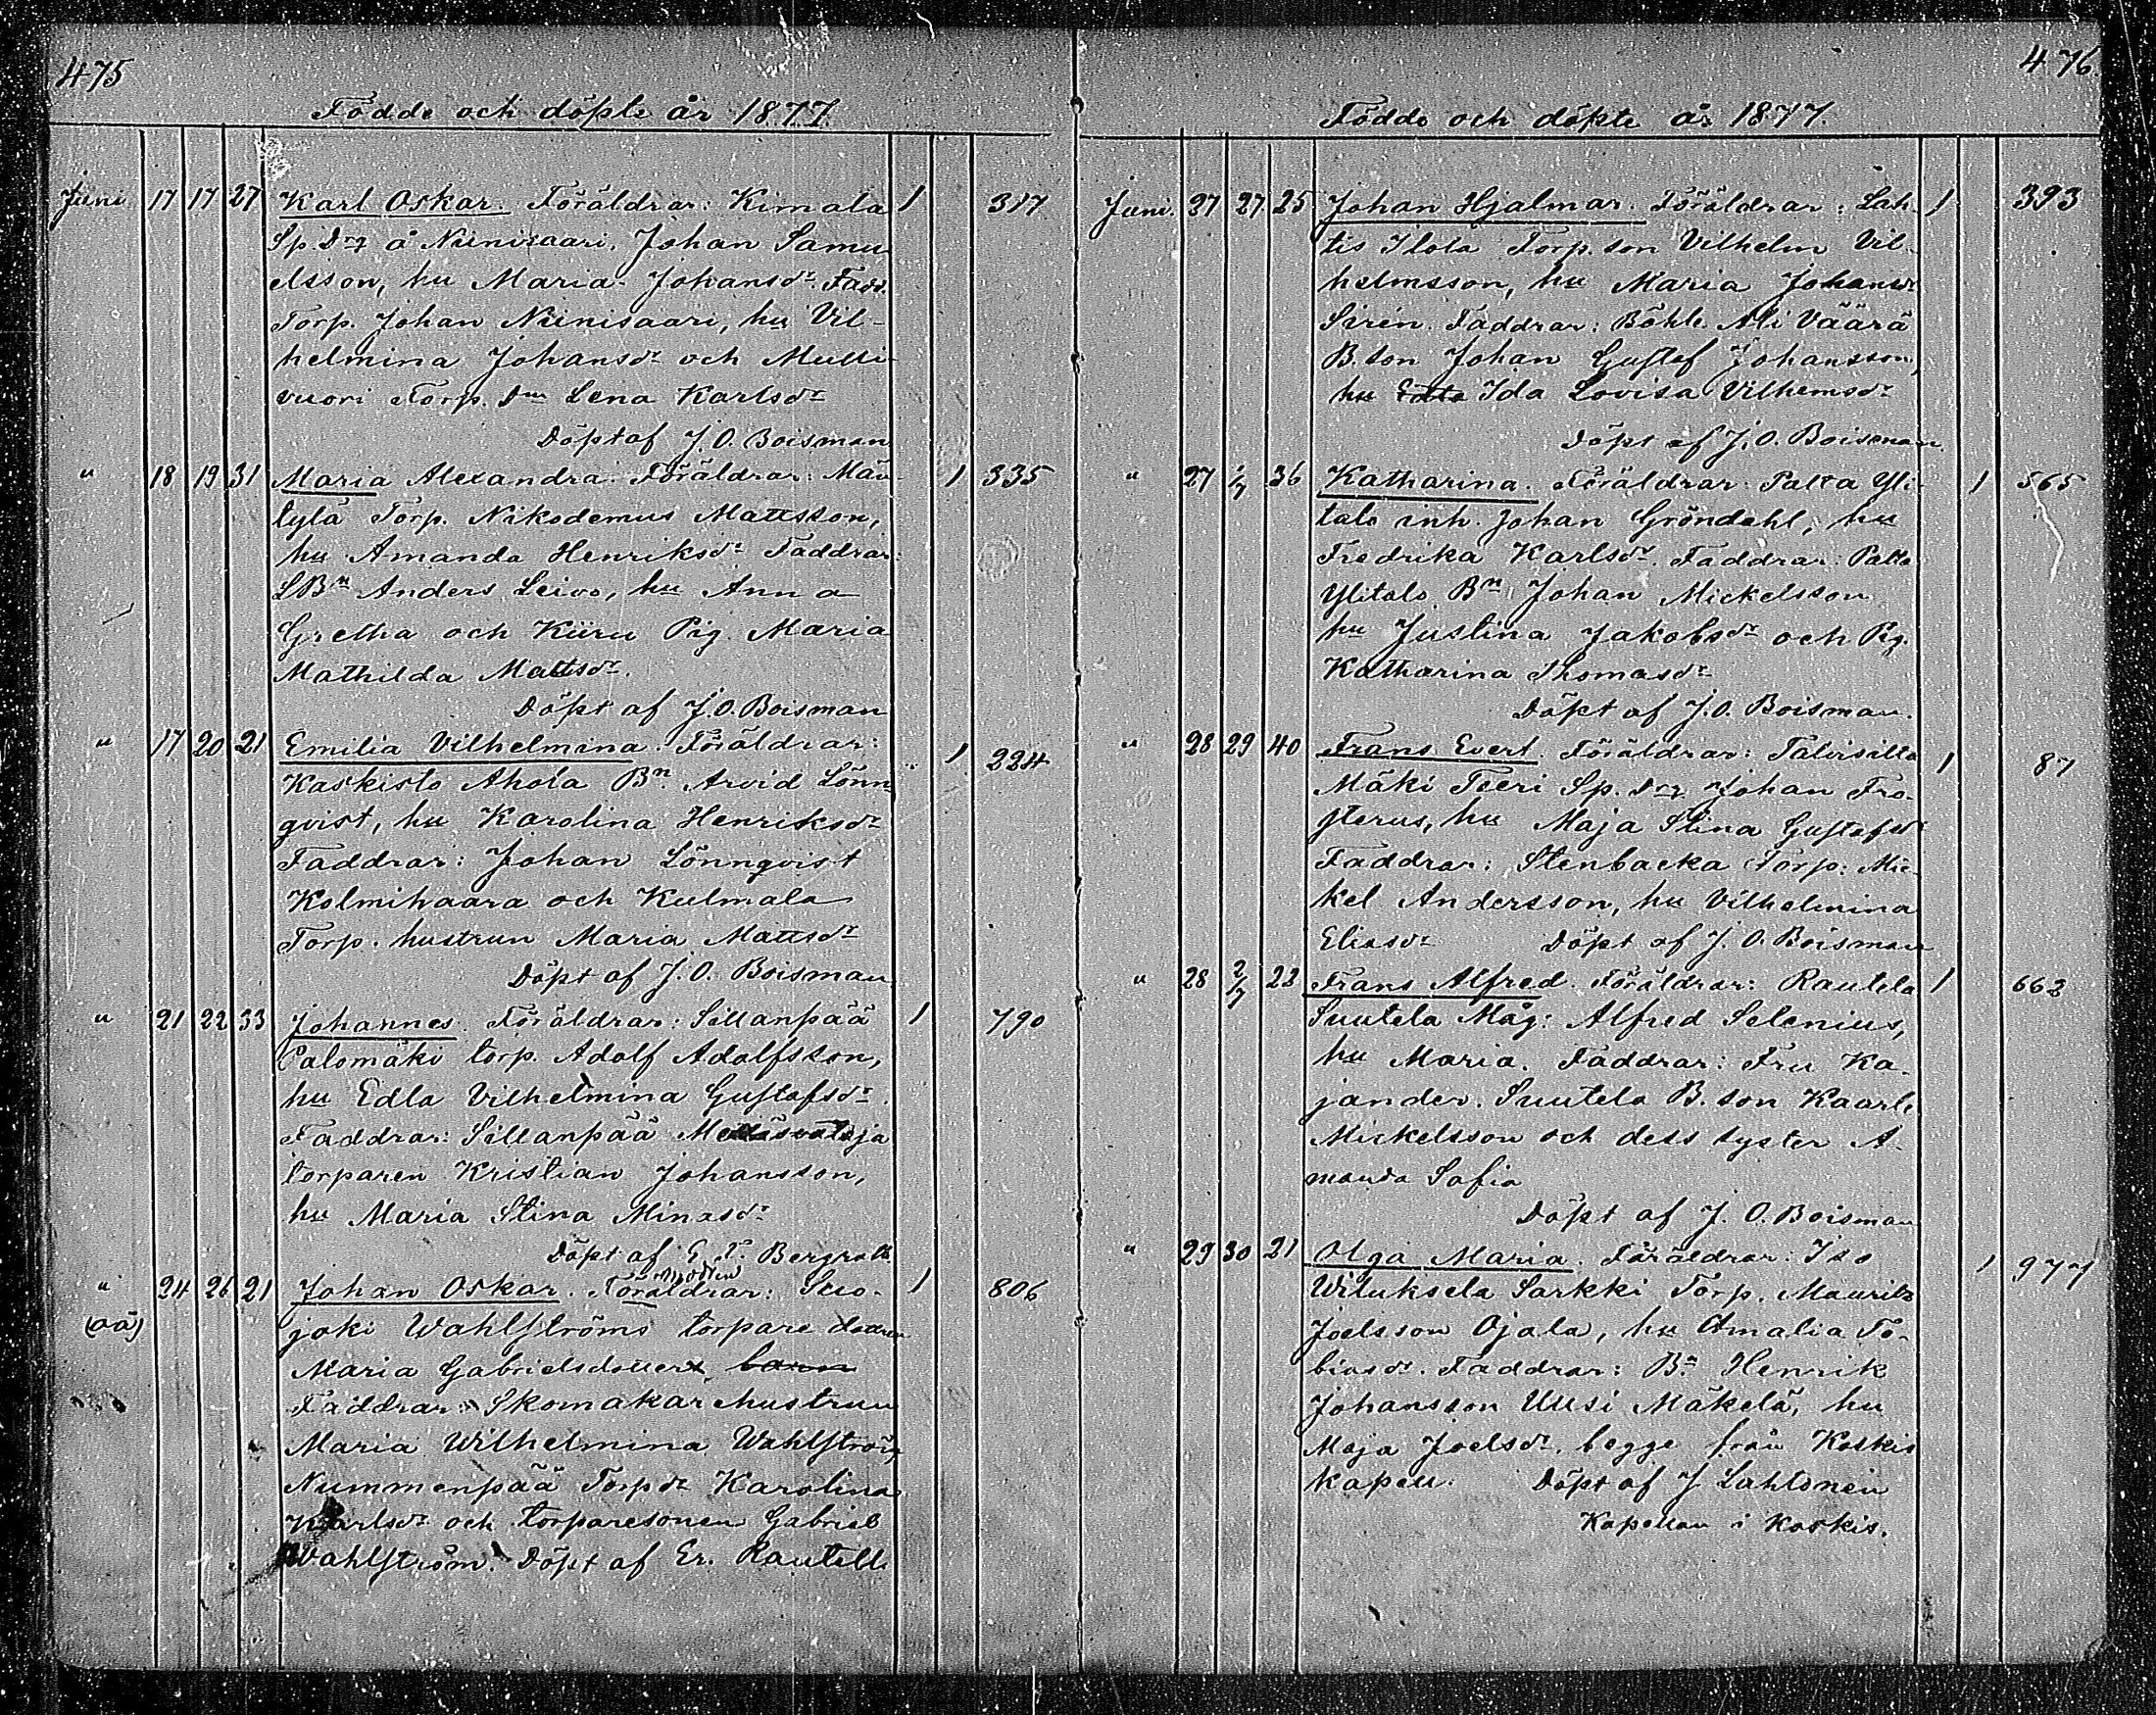 475
Födde och döpte år 1877.
Juni 17 17 27 Karl Oskar. Föräldrar: Kimala 1 317
Sp. Drg å Niinisaari, Johan Samu
elsson, hu Maria Johansdr. Fadd.
Torp. Johan Niinisaari, hu Vil-
helmina Johansdr och Multi-
vuori Torp. Dm Lena Karlsdr
Döpt af J. O. Boisman
" 18 19 31 Maria Alexandra. Föräldrar: Män- 1 335
tylä Torp. Nikodemus Mattsson,
hu Amanda Henriksdr Faddrar:
LBn Anders Leivo, hu Anna
Gretha och Kiiru Pig. Maria
Mathilda Mattsdr.
Döpt af J. O. Boisman
" 17 20 21 Emilia Vilhelmina. Föräldrar: 1 224
Kaskisto Ahola Bn. Arvid Lönn-
qvist, hu Karolina Henriksdr
Faddrar: Johan Lönnqvist
Kolmihaara och Kulmala
Torp. hustrun Maria Mattsdr
Döpt af J. O. Boisman
" 21 22 33 Johannes. Föräldrar: Sillanpää 1 790
Palomäki torp. Adolf Adolfsson,
hu Edla Vilhelmina Gustafsdr.
Faddrar: Sillanpää
torparen Kristian Johansson,
hu Maria Stina Minasdr
Döpt af Bergroth
" 24 26 21 Johan Oskar. Föräldrar: Suo- 1 806
modren
(oä) joki Wahlströms torpare dottern
Maria Gabrielsdotter barn
Faddrar: Skomakar hustrun
Maria Wilhelmina Wahlström
Nummenpää Torpdr Karolina
Karlsdr och torparesonen Gabriel
Wahlström. Döpt af Er. Rautell
476.
Födde och döpte år 1877.
Juni. 27 27 25 Johan Hjalmar. Föräldrar: Lah- 1 393
tis Ilola Torp. son Vilhelm Vil-
helmsson, hu Maria Johansdr
Sirén. Faddrar: Böhle Ali Väärä
B. son Johan Gustaf Johansson,
hu Ida Lovisa Vilhemsdr
Döpt af J. O. Boisman.
" 27 1/7 36 Katharina. Föräldrar: Palta Yli- 1 565
talo inh. Johan Gröndahl, hu
Fredrika Karlsdr. Faddrar: Palta
Ylitalo Bn Johan Mickelsson
hu Justina Jakobsdr och Pig.
Katharina Thomasdr
Döpt af J. O. Boisman.
" 28 29 40 Frans Evert. Föräldrar: Talvisilta 1 87
Mäki Teeri Sp. Drg Johan Fro-
sterus, hu Maja Stina Gustafsdr
Faddrar: Stenbacka Torp: Mic-
kel Andersson, hu Vilhelmina
Eliasdr Döpt af J. O. Boisman
" 28 2/7 22 Frans Alfred. Föräldrar: Rautela 1 662
Suutela Måg: Alfred Selenius,
hu Maria. Faddrar: Fru Ka-
jander. Suutela B. son Kaarle
Mickelsson och dess syster A-
manda Sofia
Döpt af J. O. Boisman
" 29 30 21 Olga Maria. Föräldrar: Iso 1 977
Wiluksela Sarkki Torp. Maurits
Joelsson Ojala, hu Amalia To-
biasdr. Faddrar: Bn. Henrik
Johansson Uusi Mäkelä, hu
Maja Joelsdr. begge från Koskis
kapell. Döpt af J Lahtonen
Kapellan i Koskis.